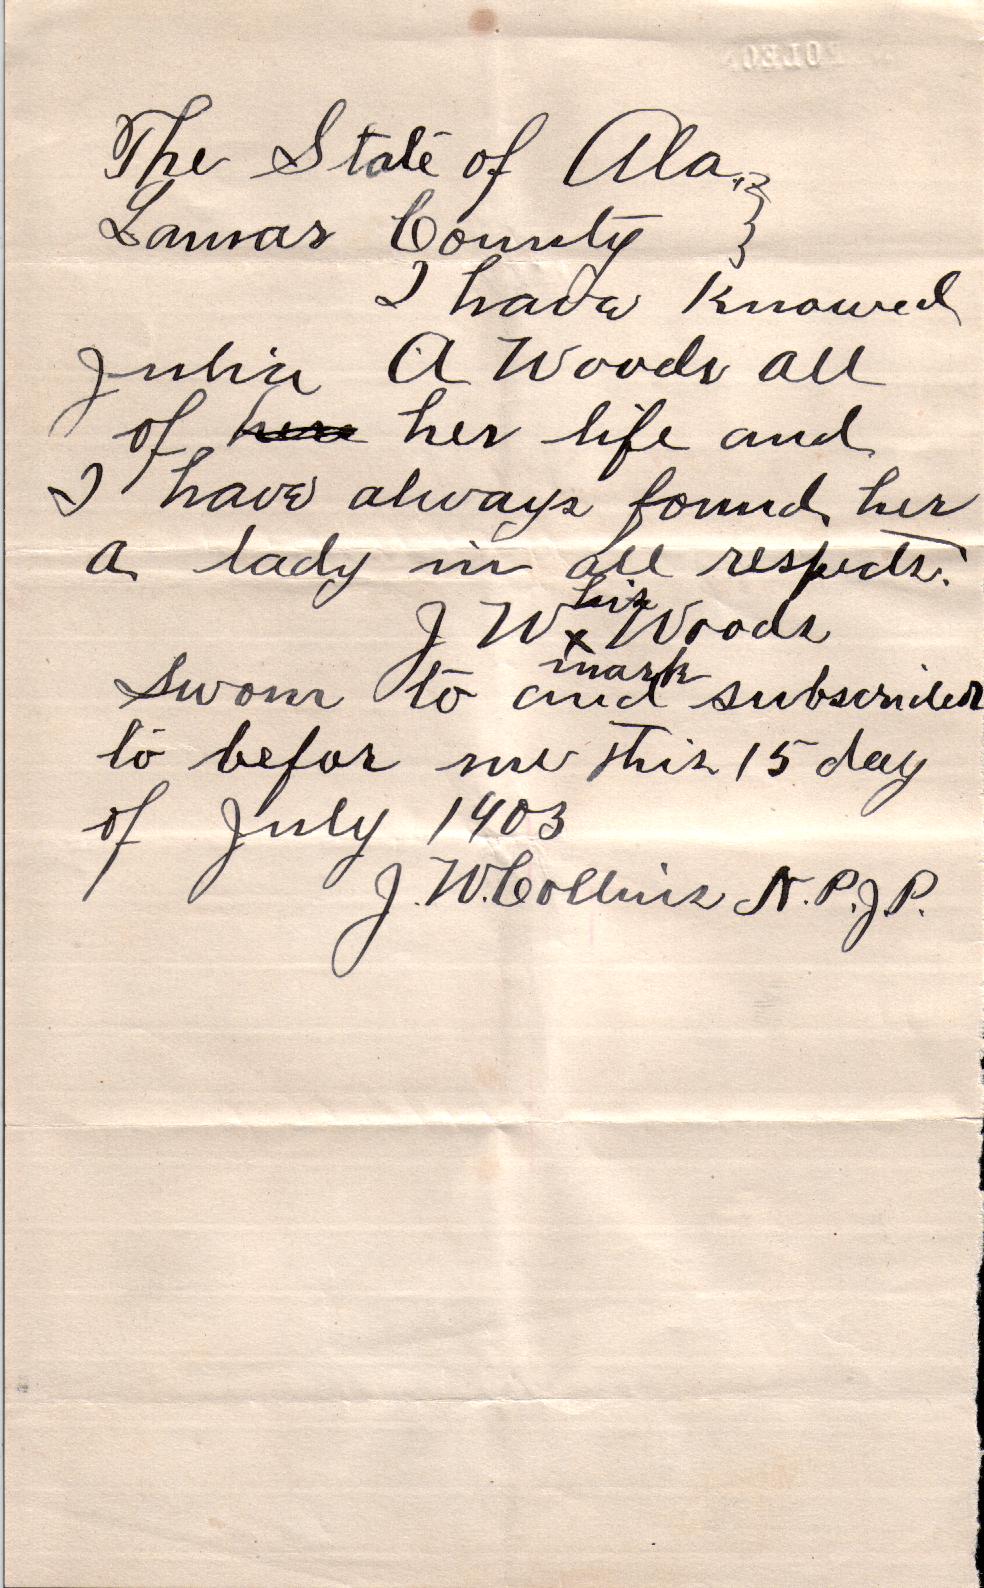 The State of Ala. }
Lamar County }
I have Knowed
Julia A Woods all
of ~~here~~ her life and
I have always found her
a lady in all respects.
his
J W x Woods
mark
Sworn to and subscribed
to befor me this 15 day
of July 1903
J. W. Collins N.P.J.P.